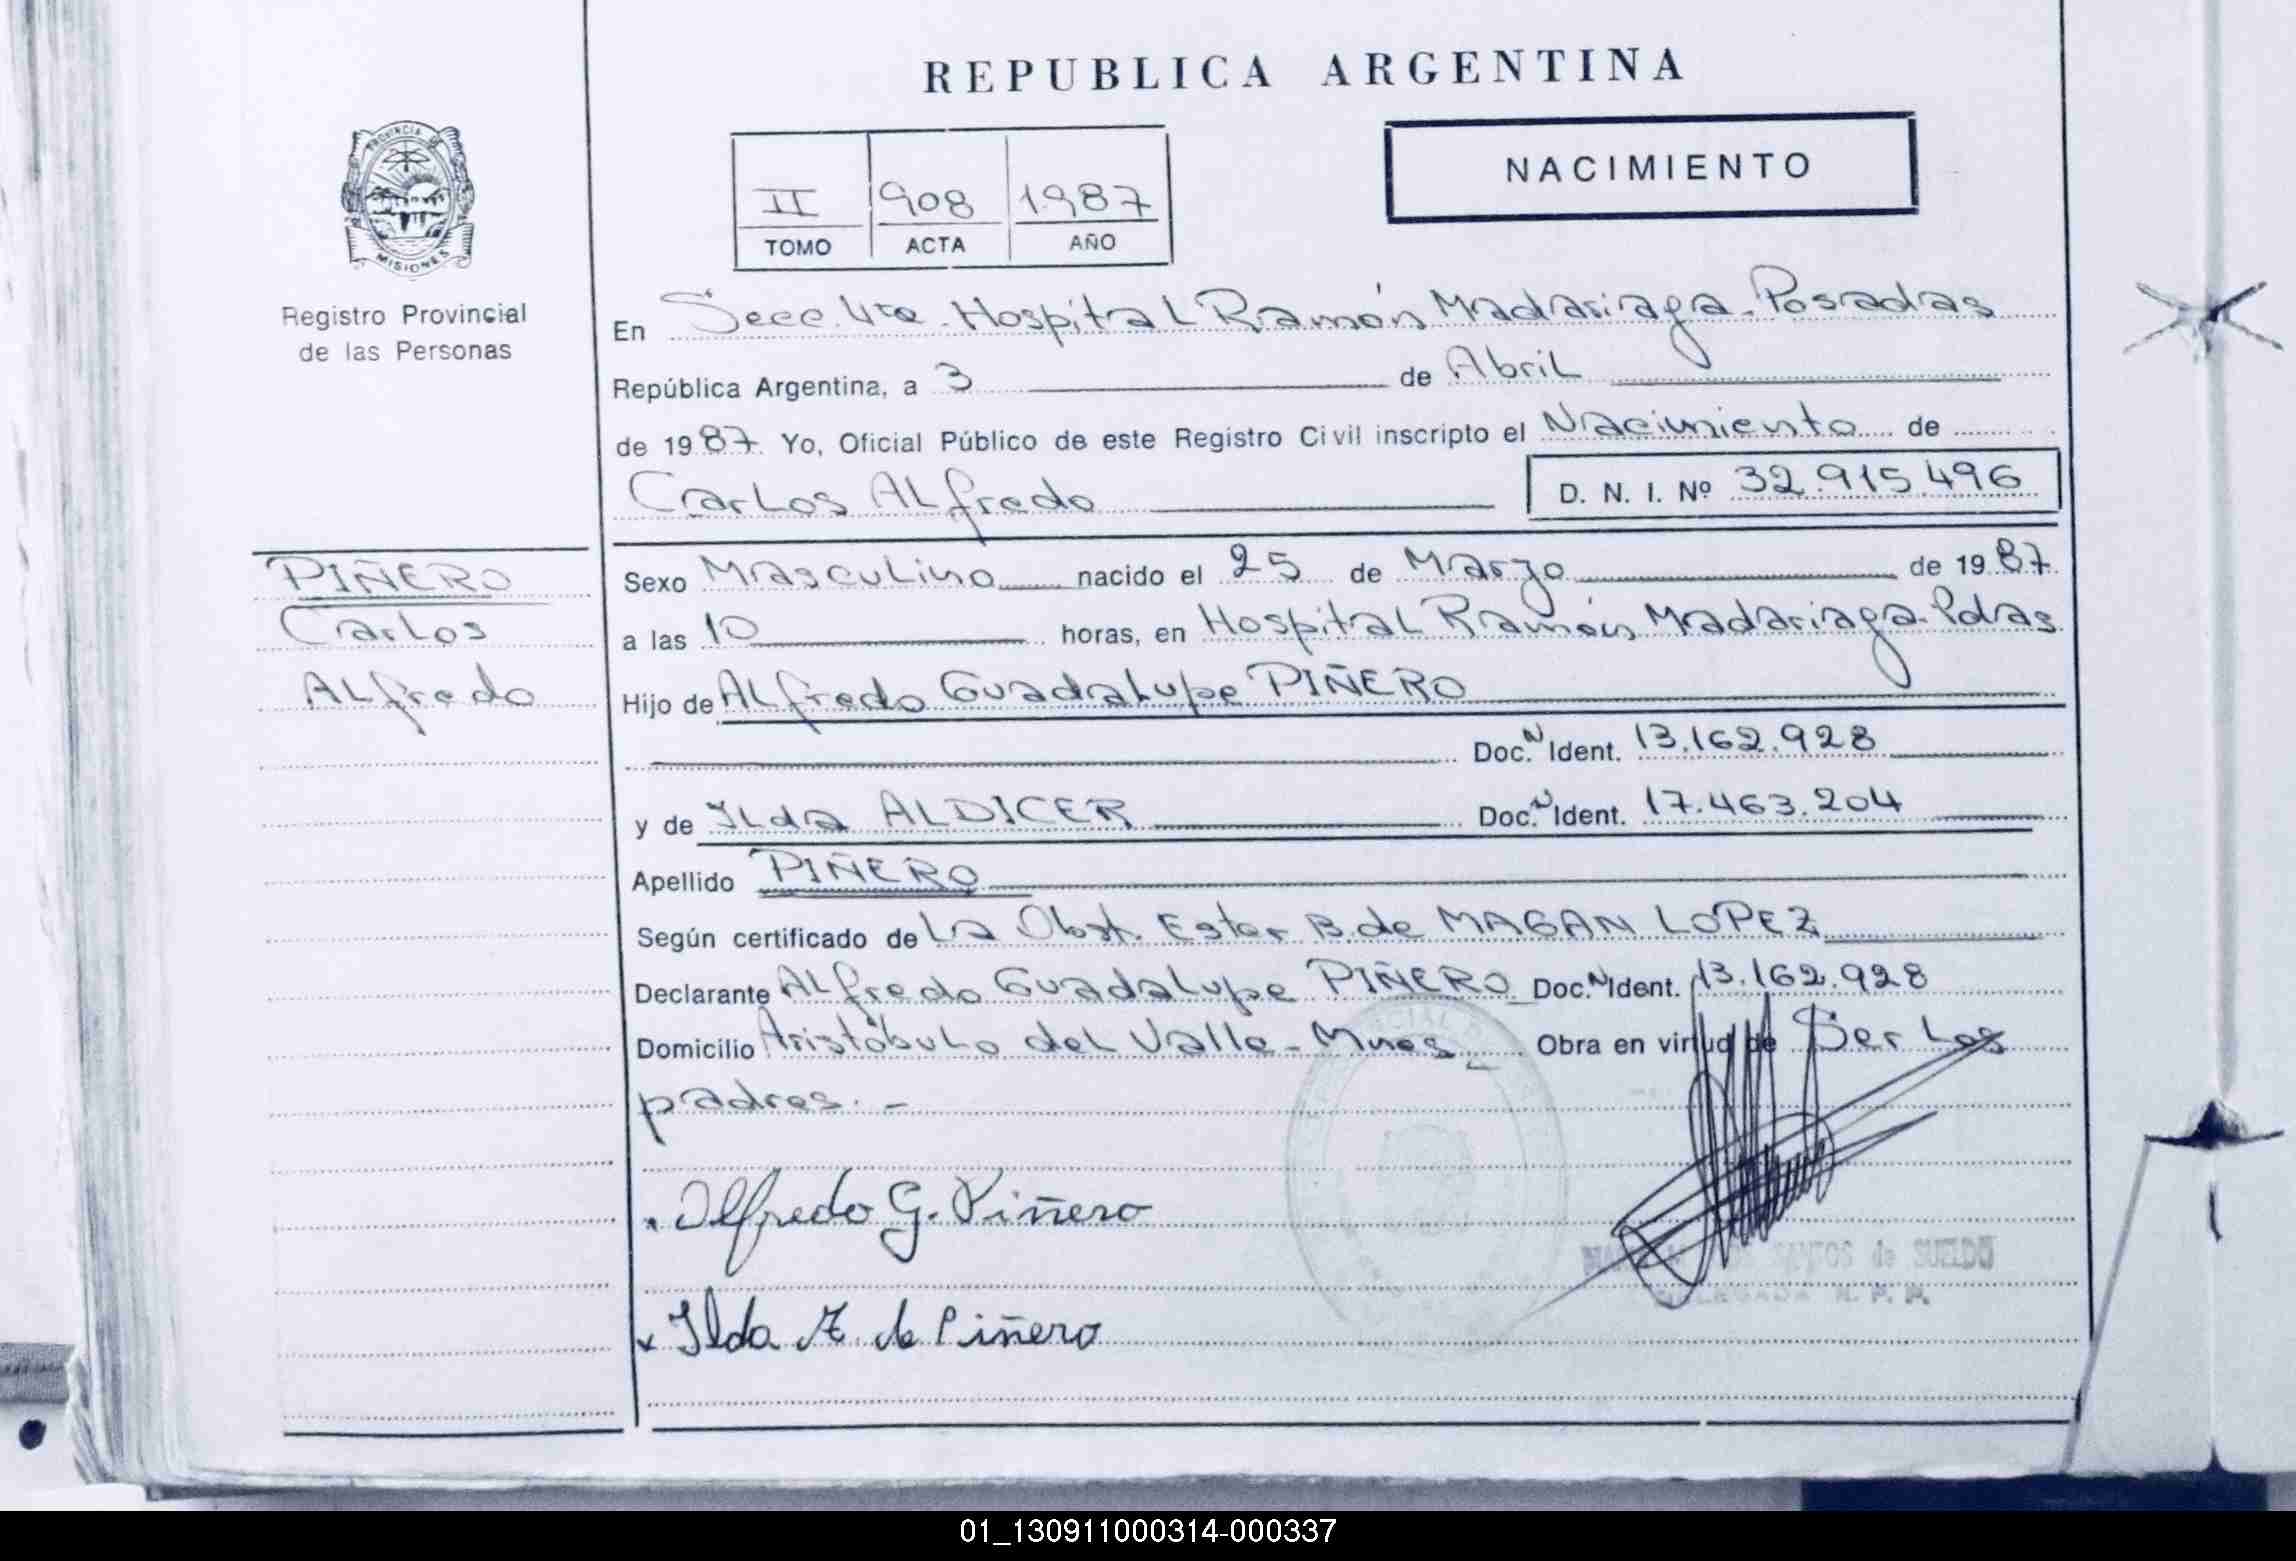 REPUBLICA ARGENTINA
PROVINCIA DE
MISIONES
Registro Provincial
de las Personas
II 908 1987
TOMO ACTA AÑO
NACIMIENTO
En Secc. 4ta. Hospital Ramón Madariaga. Posadas
República Argentina, a 3 de Abril
de 1987. Yo, Oficial Público de este Registro Civil inscripto el Nacimiento de
Carlos Alfredo D. N. I. Nº 32.915.496
PIÑERO
Carlos
Alfredo
Sexo Masculino nacido el 25 de Marzo de 1987
a las 10 horas, en Hospital Ramón Madariaga. Pdas
Hijo de Alfredo Guadalupe PIÑERO
Doc. N Ident. 13.162.928
y de Ilda ALDICER Doc. N Ident. 17.463.204
Apellido PIÑERO
Según certificado de La Obst. Ester B. de MAGAN LOPEZ
Declarante Alfredo Guadalupe PIÑERO Doc. N Ident. 13.162.928
Domicilio Aristóbulo del Valle - Mnes Obra en virtud de Ser Los
padres. -
Alfredo G. Piñero
SANTOS de SUELDO
R. P. P.
x Ilda A. de Piñero
01_130911000314-000337